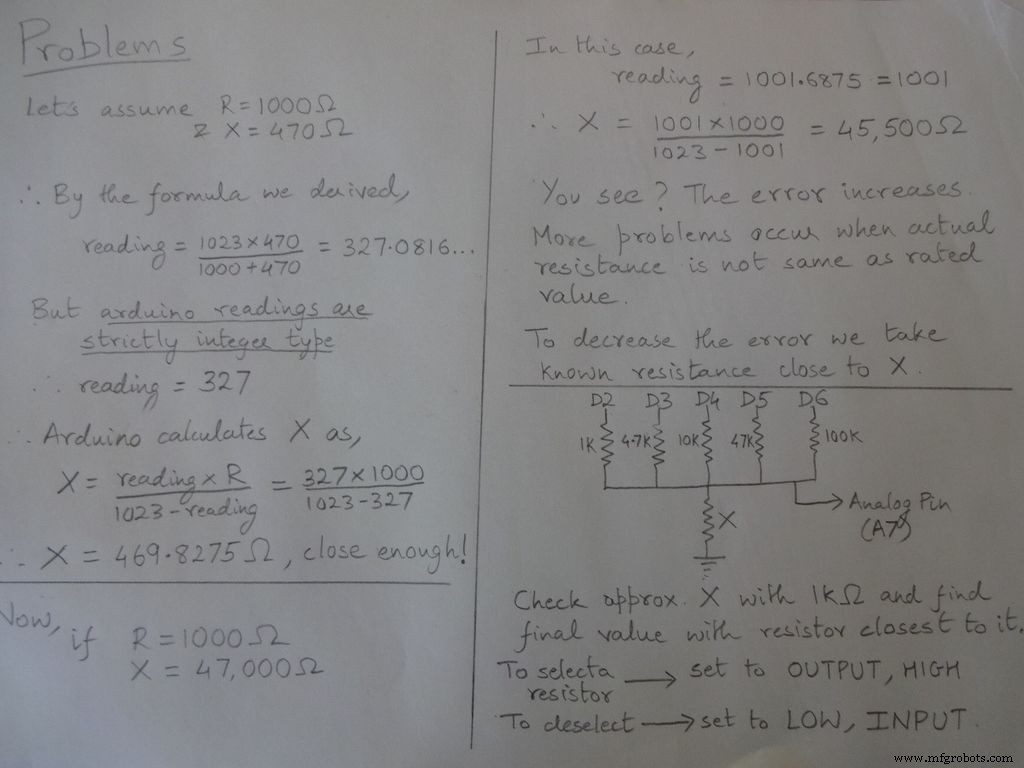 Problems
Let's assume R = 1000Ω
& X = 470Ω
∴ By the formula we derived,
reading = 1023×470 / 1000+470 = 327.0816...
But arduino readings are
strictly integer type
∴ reading = 327
∴ Arduino calculates X as,
X = reading × R / 1023 - reading = 327×1000 / 1023-327
∴ X = 469.8275Ω, close enough!
Now, if R = 1000Ω
X = 47,000Ω
In this case,
reading = 1001.6875 = 1001
∴ X = 1001×1000 / 1023-1001 = 45,500Ω
You see? The error increases.
More problems occur when actual
resistance is not same as rated
value.
To decrease the error we take
known resistance close to X.
D2 D3 D4 D5 D6
1K 4.7K 10K 47K 100K
X
Analog Pin
(A7)
Check approx. X with 1KΩ and find
final value with resistor closest to it.
To select a → set to OUTPUT, HIGH
resistor
To deselect → set to LOW, INPUT.
www.mfgrobots.com